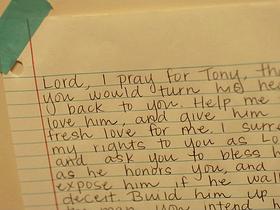 Lord, I pray for Tony, th
you would turn his he
back to you. Help me
love him, and give him
fresh love for me. I surr
my rights to you as Lo
and ask you to bless h
as he honors you, and
expose him if he wal
deceit. Build him up
man you intend h